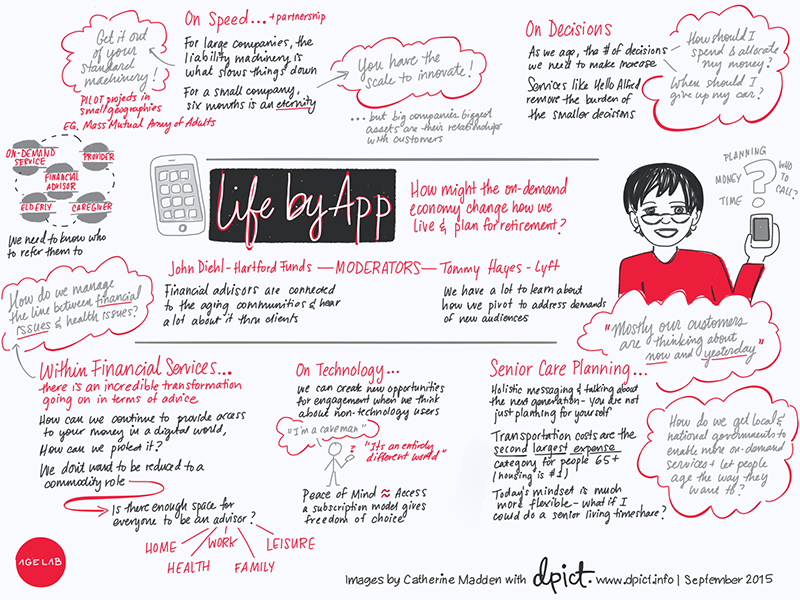 Get it out
of your
standard
machinery!
PILOT projects in
small geographies
EG. Mass Mutual Army of Adults
On Speed... + partnership
For large companies, the
liability machinery is
what slows things down
For a small company,
six months is an eternity
You have the
scale to innovate!
...but big companies biggest
assets are their relationships
with customers
On Decisions
As we age, the # of decisions
we need to make increase
Services like Hello Alfred
remove the burden of
the smaller decisions
How should I
spend & allocate
my money?
When should I
give up my car?
ON-DEMAND
SERVICE
PROVIDER
FINANCIAL
ADVISOR
ELDERLY
CAREGIVER
We need to know who
to refer them to
Life by App
How might the on-demand
economy change how we
live & plan for retirement?
PLANNING
MONEY
TIME
?
WHO
TO
CALL?
John Diehl - Hartford Funds — MODERATORS — Tommy Hayes - Lyft
Financial advisors are connected
to the aging communities & hear
a lot about it thru clients
We have a lot to learn about
how we pivot to address demands
of new audiences
"Mostly our customers
are thinking about
now and yesterday"
How do we manage
the line between financial
issues & health issues?
Within Financial Services...
there is an incredible transformation
going on in terms of advice
How can we continue to provide access
to your money in a digital world,
How can we protect it?
We don't want to be reduced to a
commodity role
Is there enough space for
everyone to be an advisor?
HOME
HEALTH
WORK
FAMILY
LEISURE
On Technology...
We can create new opportunities
for engagement when we think
about non-technology users
"I'm a caveman"
"It's an entirely
different world"
Peace of Mind ≈ Access
a subscription model gives
freedom of choice
Senior Care Planning...
Holistic messaging & talking about
the next generation - you are not
just planning for yourself
Transportation costs are the
second largest expense
category for people 65+
(housing is #1)
Today's mindset is much
more flexible - what if I
could do a senior living timeshare?
How do we get local &
national governments to
enable more on-demand
services + let people
age the way they
want to?
AGE LAB
Images by Catherine Madden with dpict. www.dpict.info | September 2015